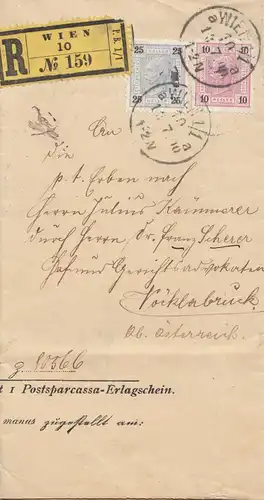 WIEN
10
R № 159
25 25
10 10
WIEN 1/1
An
die
p. t. Erben nach
Herrn Julius Kammerer
durch Herrn Dr. Franz Scherer
Hof und Gerichtsadvokaten
Vöcklabruck
Ob. Österreich.
z. 80566
t 1 Postsparcassa-Erlagschein.
manus zugestellt am: